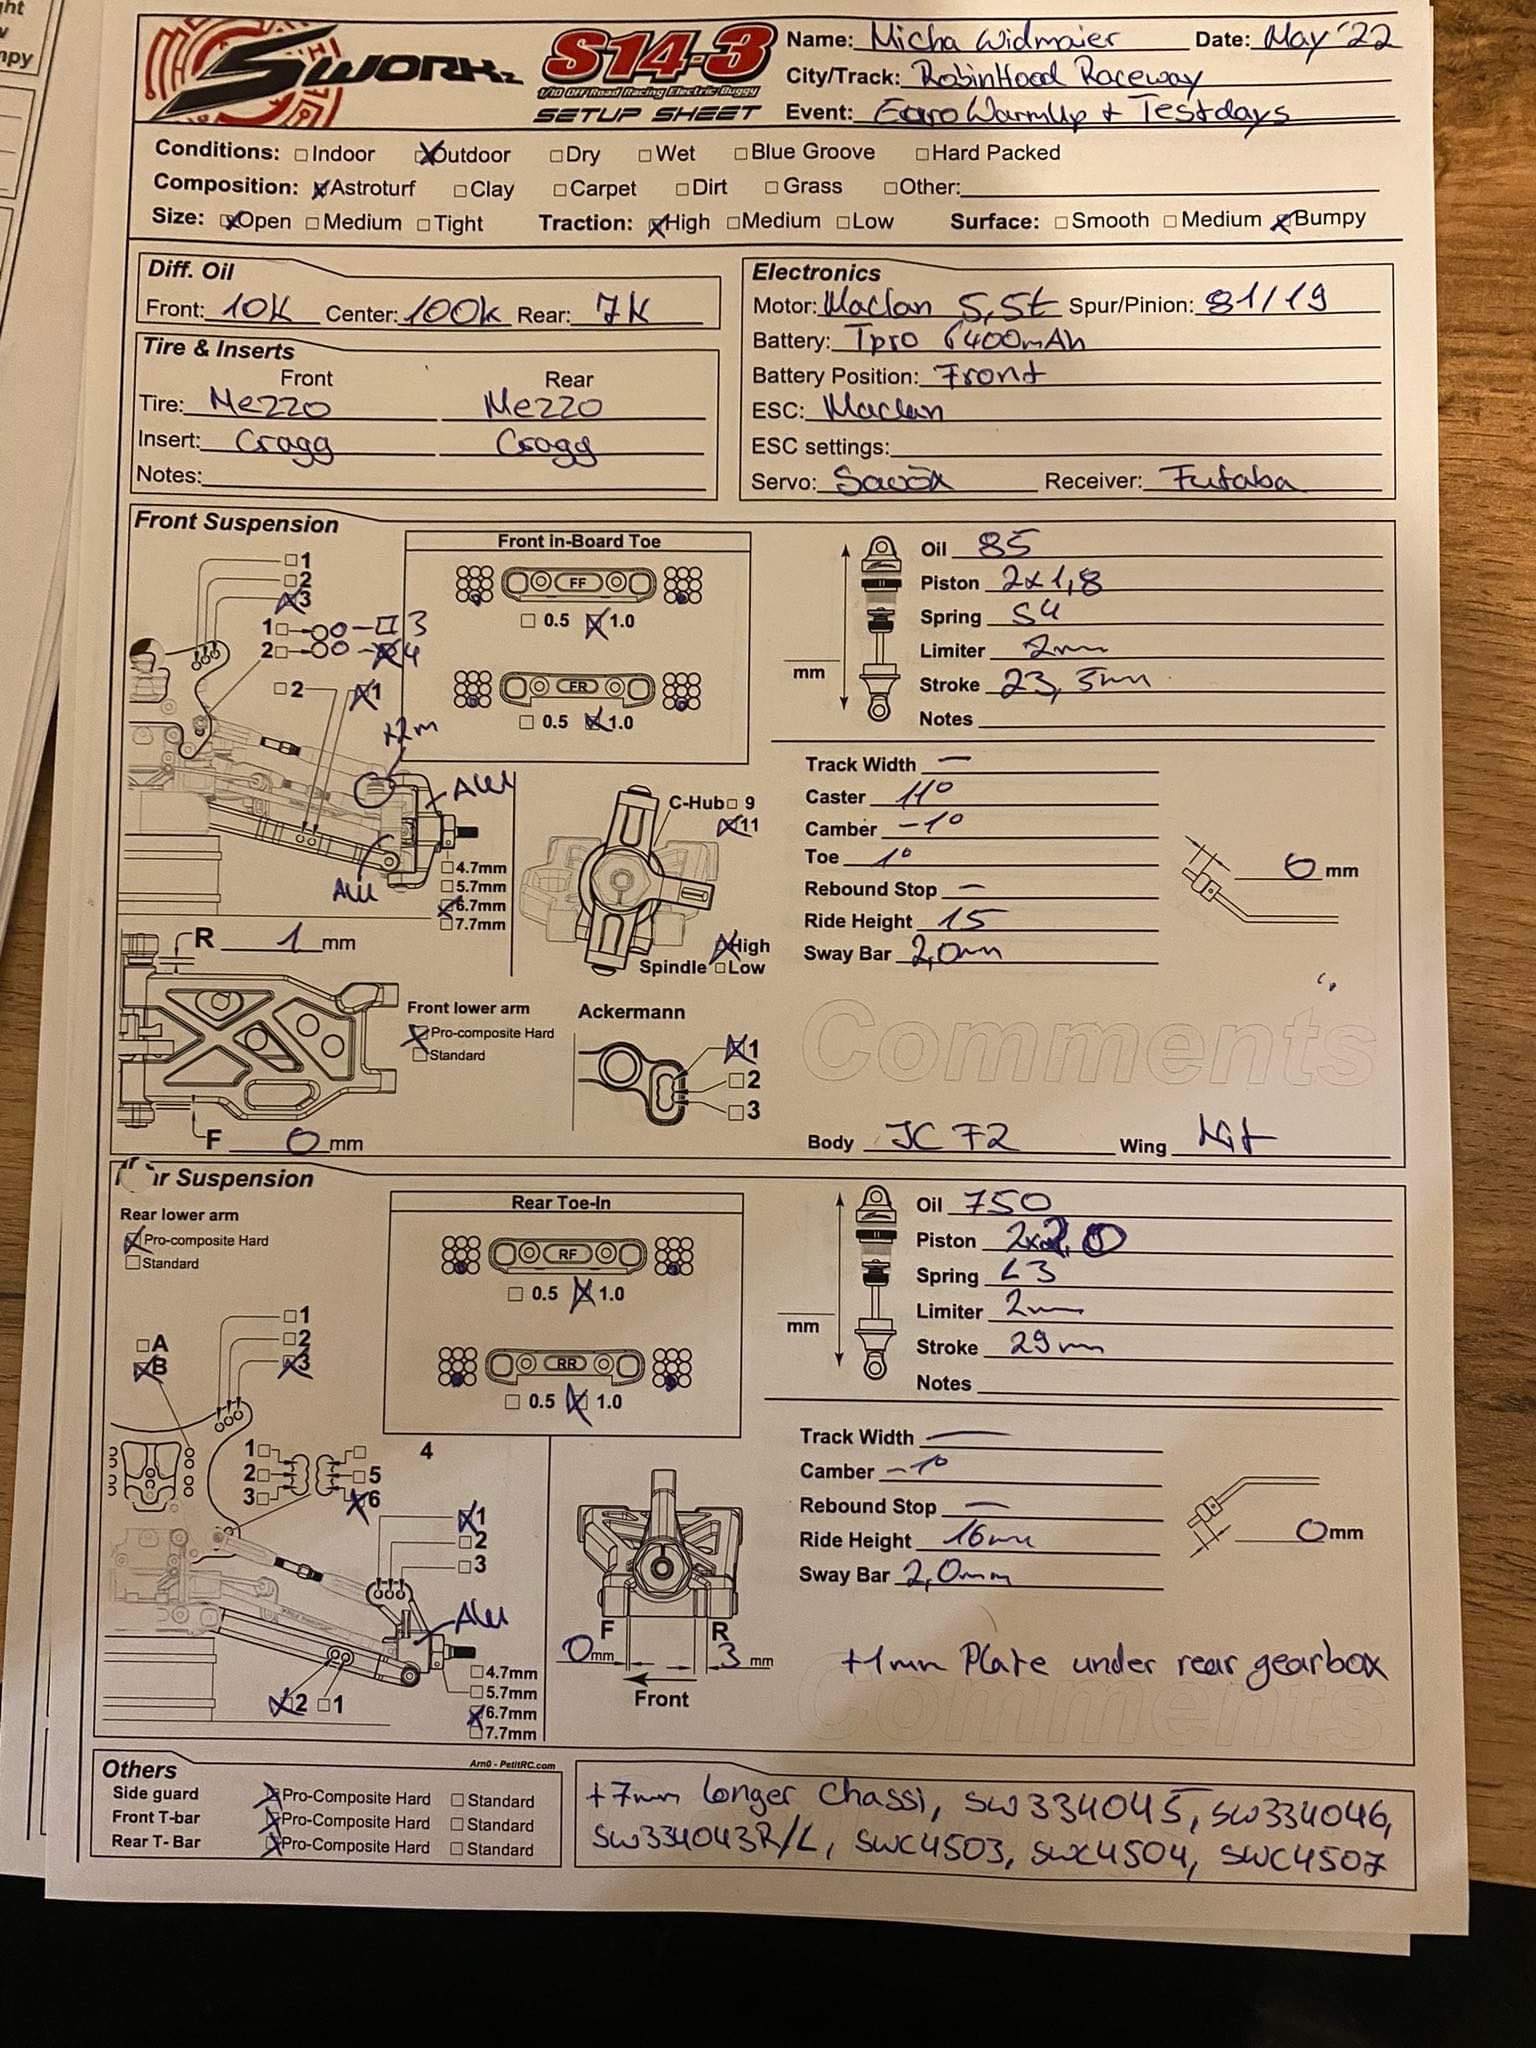 SWORKz S14-3 Name: Micha Widmaier Date: May '22
1/10 Off Road Racing Electric Buggy City/Track: RobinHood Raceway
SETUP SHEET Event: Euro WarmUp + Testdays
Conditions: Indoor Outdoor Dry Wet Blue Groove Hard Packed
Composition: Astroturf Clay Carpet Dirt Grass Other:
Size: Open Medium Tight Traction: High Medium Low Surface: Smooth Medium Bumpy
Diff. Oil
Front: 10K Center: 100K Rear: 7K
Tire & Inserts
Front Rear
Tire: Mezzo Mezzo
Insert: Cragg Cragg
Notes:
Electronics
Motor: Maclan 5,5t Spur/Pinion: 81/19
Battery: Tpro 6400mAh
Battery Position: Front
ESC: Maclan
ESC settings:
Servo: Savöx Receiver: Futaba
Front Suspension
1
2
3
1 3
2 4
2 1
+2m
Alu
Alu
4.7mm
5.7mm
6.7mm
7.7mm
Front in-Board Toe
FF
0.5 1.0
FR
0.5 1.0
C-Hub 9
11
High
Spindle Low
R 1 mm
F 0 mm
Front lower arm
Pro-composite Hard
Standard
Ackermann
1
2
3
mm
Oil 85
Piston 2x1,8
Spring S4
Limiter 2mm
Stroke 23,5mm
Notes
Track Width —
Caster 11°
Camber -1°
Toe 1°
Rebound Stop —
Ride Height 15
Sway Bar 2,0mm
0 mm
Comments
Body JC F2 Wing Kit
Suspension
Rear lower arm
Pro-composite Hard
Standard
A
B
1
2
3
1
2 5
3 6
4
1
2
3
Alu
2 1
4.7mm
5.7mm
6.7mm
7.7mm
Rear Toe-In
RF
0.5 1.0
RR
0.5 1.0
F R
0mm 3 mm
Front
mm
Oil 750
Piston 2x2,0
Spring L3
Limiter 2mm
Stroke 29mm
Notes
Track Width —
Camber -1°
Rebound Stop —
Ride Height 16mm
Sway Bar 2,0mm
0mm
+1mm Plate under rear gearbox
Comments
Others
Arn0 - PetitRC.com
Side guard Pro-Composite Hard Standard
Front T-bar Pro-Composite Hard Standard
Rear T- Bar Pro-Composite Hard Standard
+7mm longer Chassi, SW334045, SW334046,
SW334043R/L, SWC4503, SWC4504, SWC4507